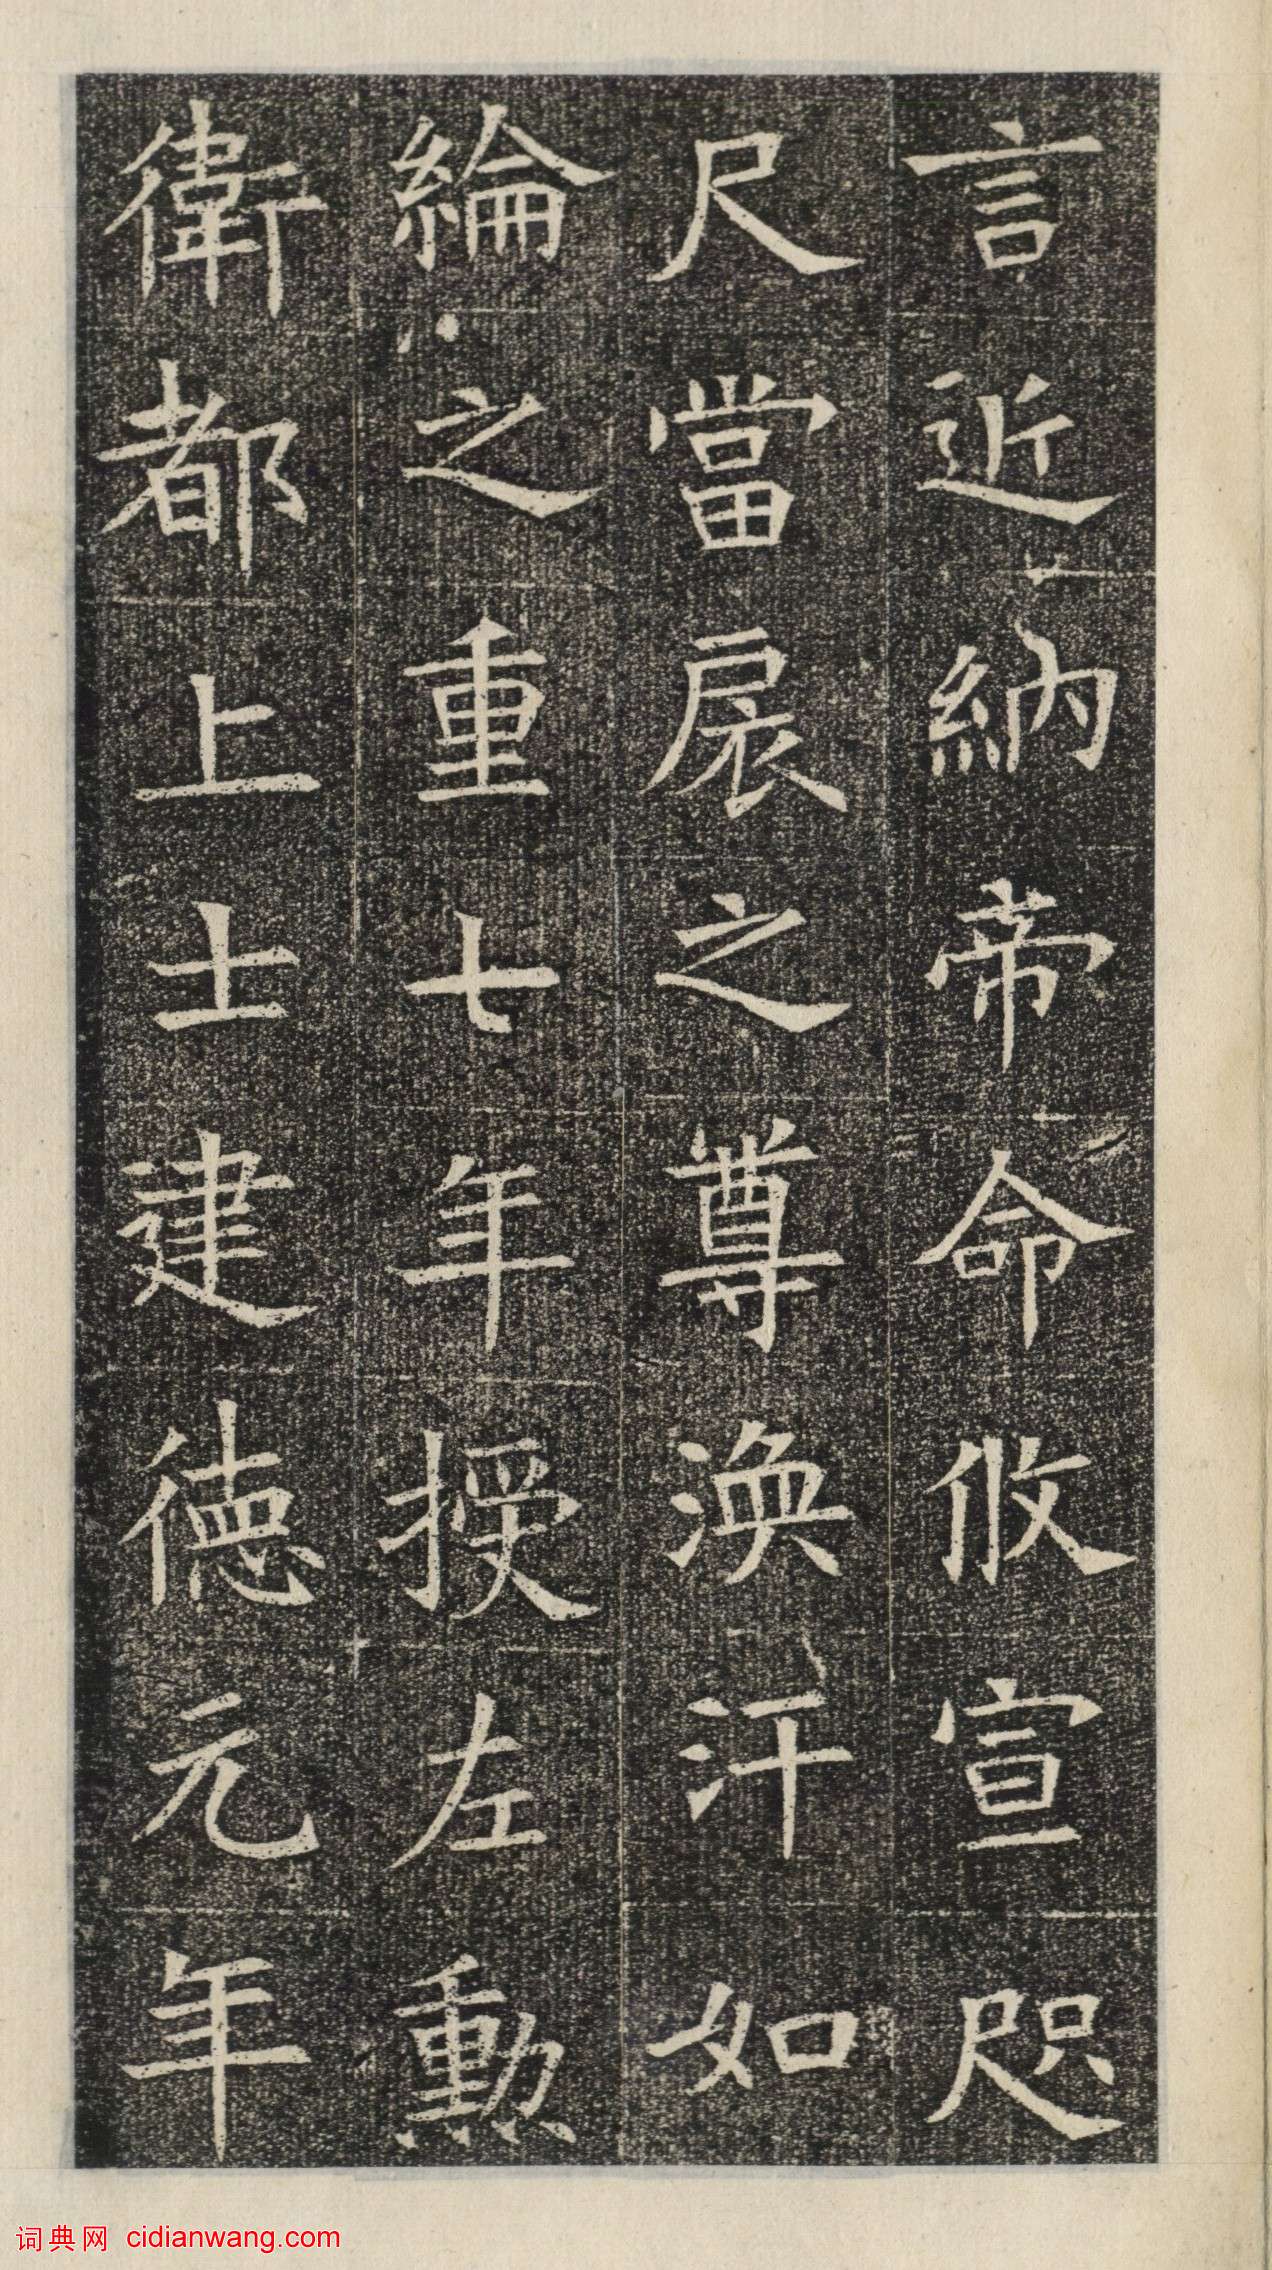 言近納帝命攸宣咫
尺當扆之尊渙汗如
綸之重七年授左勳
衛都上士建德元年
词典网 cidianwang.com